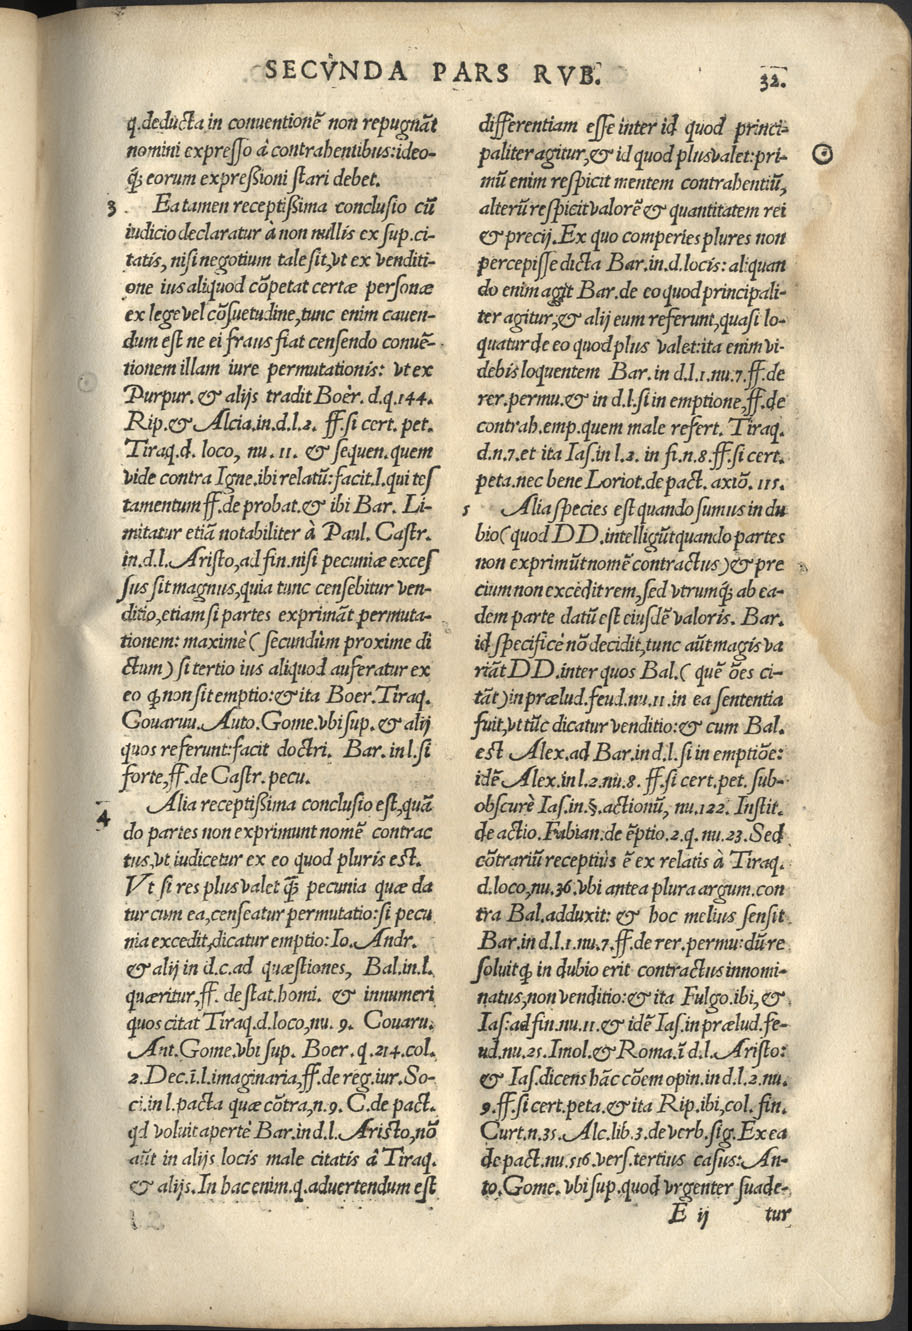 SECVNDA PARS RVB.
32.
q. deducta in conuentionē non repugnāt
nomini expresso à contrahentibus: ideo-
q́; eorum expreßioni stari debet.
3 Ea tamen receptißima conclusio cū
iudicio declaratur à non nullis ex sup. ci-
tatis, nisi negotium tale sit, vt ex venditi-
one ius aliquod cōpetat certæ personæ
ex lege vel cōsuetudine, tunc enim cauen-
dum est ne ei fraus fiat censendo conuē-
tionem illam iure permutationis: vt ex
Purpur. & alijs tradit Boèr. d. q. 144.
Rip. & Alcia. in. d. l. 2. ff. si cert. pet.
Tiraq. d. loco, nu. 11. & sequen. quem
vide contra Igne. ibi relatū: facit. l. qui tes
tamentum ff. de probat. & ibi Bar. Li-
mitatur etiā notabiliter à Paul. Castr.
in. d. l. Aristo, ad fin. nisi pecuniæ exces
sus sit magnus, quia tunc censebitur ven-
ditio, etiam si partes exprimāt permuta-
tionem: maximè ( secundùm proxime di
ctum ) si tertio ius aliquod auferatur ex
eo q̨ non sit emptio: & ita Boer. Tiraq.
Couaruu. Anto. Gome. vbi sup. & alij
quos referunt: facit doctri. Bar. in l. si
forte, ff. de Castr. pecu.
4 Alia receptißima conclusio est, quā
do partes non exprimunt nomē contrac
tus, vt iudicetur ex eo quod pluris est.
Vt si res plus valet q́; pecunia quæ da
tur cum ea, censeatur permutatio: si pecu
nia excedit, dicatur emptio: Io. Andr.
& alij in d. c. ad quæstiones, Bal. in. l.
quæritur, ff. de stat. homi. & innumeri
quos citat Tiraq. d. loco, nu. 9. Couaru.
Ant. Gome. vbi sup. Boer. q. 214. col.
2. Dec. ī. l. imaginaria, ff. de reg. iur. So-
ci. in l. pacta quæ cōtra, n. 9. C. de pact.
qd voluit apertè Bar. in d. l. Aristo, nō
aūt in alijs locis male citatis â Tiraq.
& alijs. In hac enim. q. aduertendum est
differentiam esse inter id quod princi-
paliter agitur, & id quod plus valet: pri-
mū enim respicit mentem contrahentiū,
alterū respicit valorē & quantitatem rei
& precij. Ex quo comperies plures non
percepisse dicta Bar. in. d. locis: aliquan
do enim agit Bar. de eo quod principali-
ter agitur, & alij eum referunt, quasi lo-
quatur de eo quod plus valet: ita enim vi-
debis loquentem Bar. in d. l. 1. nu. 7. ff. de
rer. permu. & in d. l. si in emptione, ff. de
contrah. emp. quem male refert. Tiraq.
d. n. 7. et ita Ias. in l. 2. in fi. n. 8. ff. si cert.
peta. nec bene Loriot. de pact. axiō. 115.
5 Alia species est quando sumus in du
bio ( quod DD. intelligūt quando partes
non exprimūt nomē contractus ) & pre
cium non excedit rem, sed vtrumq́; ab ea-
dem parte datū est eiusdē valoris. Bar.
id specificè nō decidit, tunc aūt magis va
riāt DD. inter quos Bal. ( quē ōes ci-
tāt ) in prælud. feud. nu. 11. in ea sententia
fuit, vt tūc dicatur venditio: & cum Bal.
est Alex. ad Bar. in d. l. si in emptiōe:
idē Alex. in l. 2. nu. 8. ff. si cert. pet. sub-
obscurè Ias. in. §. actionū, nu. 122. Instit.
de actio. Fabian: de ēptio. 2. q. nu. 23. Sed
cōtrariū receptiùs ē ex relatis à Tiraq.
d. loco, nu. 36. vbi antea plura argum. con
tra Bal. adduxit: & hoc melius sensit
Bar. in d. l. 1. nu. 7. ff. de rer. permu: dū re
soluit q̨ in dubio erit contractus innomi-
natus, non venditio: & ita Fulgo. ibi, &
Ias: ad fin. nu. 11. & idē Ias. in prælud. fe-
ud. nu. 25. Imol. & Roma. ī d. l. Aristo:
& Ias. dicens hāc cōem opin. in d. l. 2. nu.
9. ff. si cert. peta. & ita Rip. ibi, col. fin.
Curt. n. 35. Alc. lib. 3. de verb. sig. Ex ea
de pact. nu. 516. vers. tertius casus: An-
to. Gome. vbi sup. quod vrgenter suade-
E ij tur